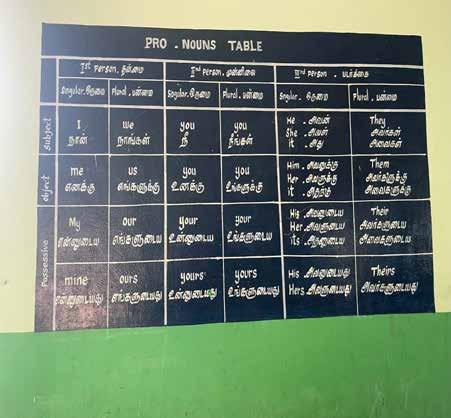 PRO - NOUNS TABLE
Ist Person. தன்மை IInd Person. முன்னிலை IIIrd person - படர்க்கை
Singular. ஒருமை Plural. பன்மை Singular. ஒருமை Plural. பன்மை Singular. ஒருமை Plural. பன்மை
Subject
I we you you He - அவன் They
நான் நாங்கள் நீ நீங்கள் She - அவள் அவர்கள்
it - அது அவைகள்
object
me us you you Him - அவனுக்கு Them
எனக்கு எங்களுக்கு உனக்கு உங்களுக்கு Her - அவளுக்கு அவர்களுக்கு
it - அதற்கு அவைகளுக்கு
Possessive
My our your your His - அவனுடைய Their
என்னுடைய எங்களுடைய உன்னுடைய உங்களுடைய Her - அவளுடைய அவர்களுடைய
its - அதனுடைய அவைகளுடைய
mine ours yours yours His அவனுடையது Theirs
என்னுடையது எங்களுடையது உன்னுடையது உங்களுடையது Hers அவளுடையது அவர்களுடையது